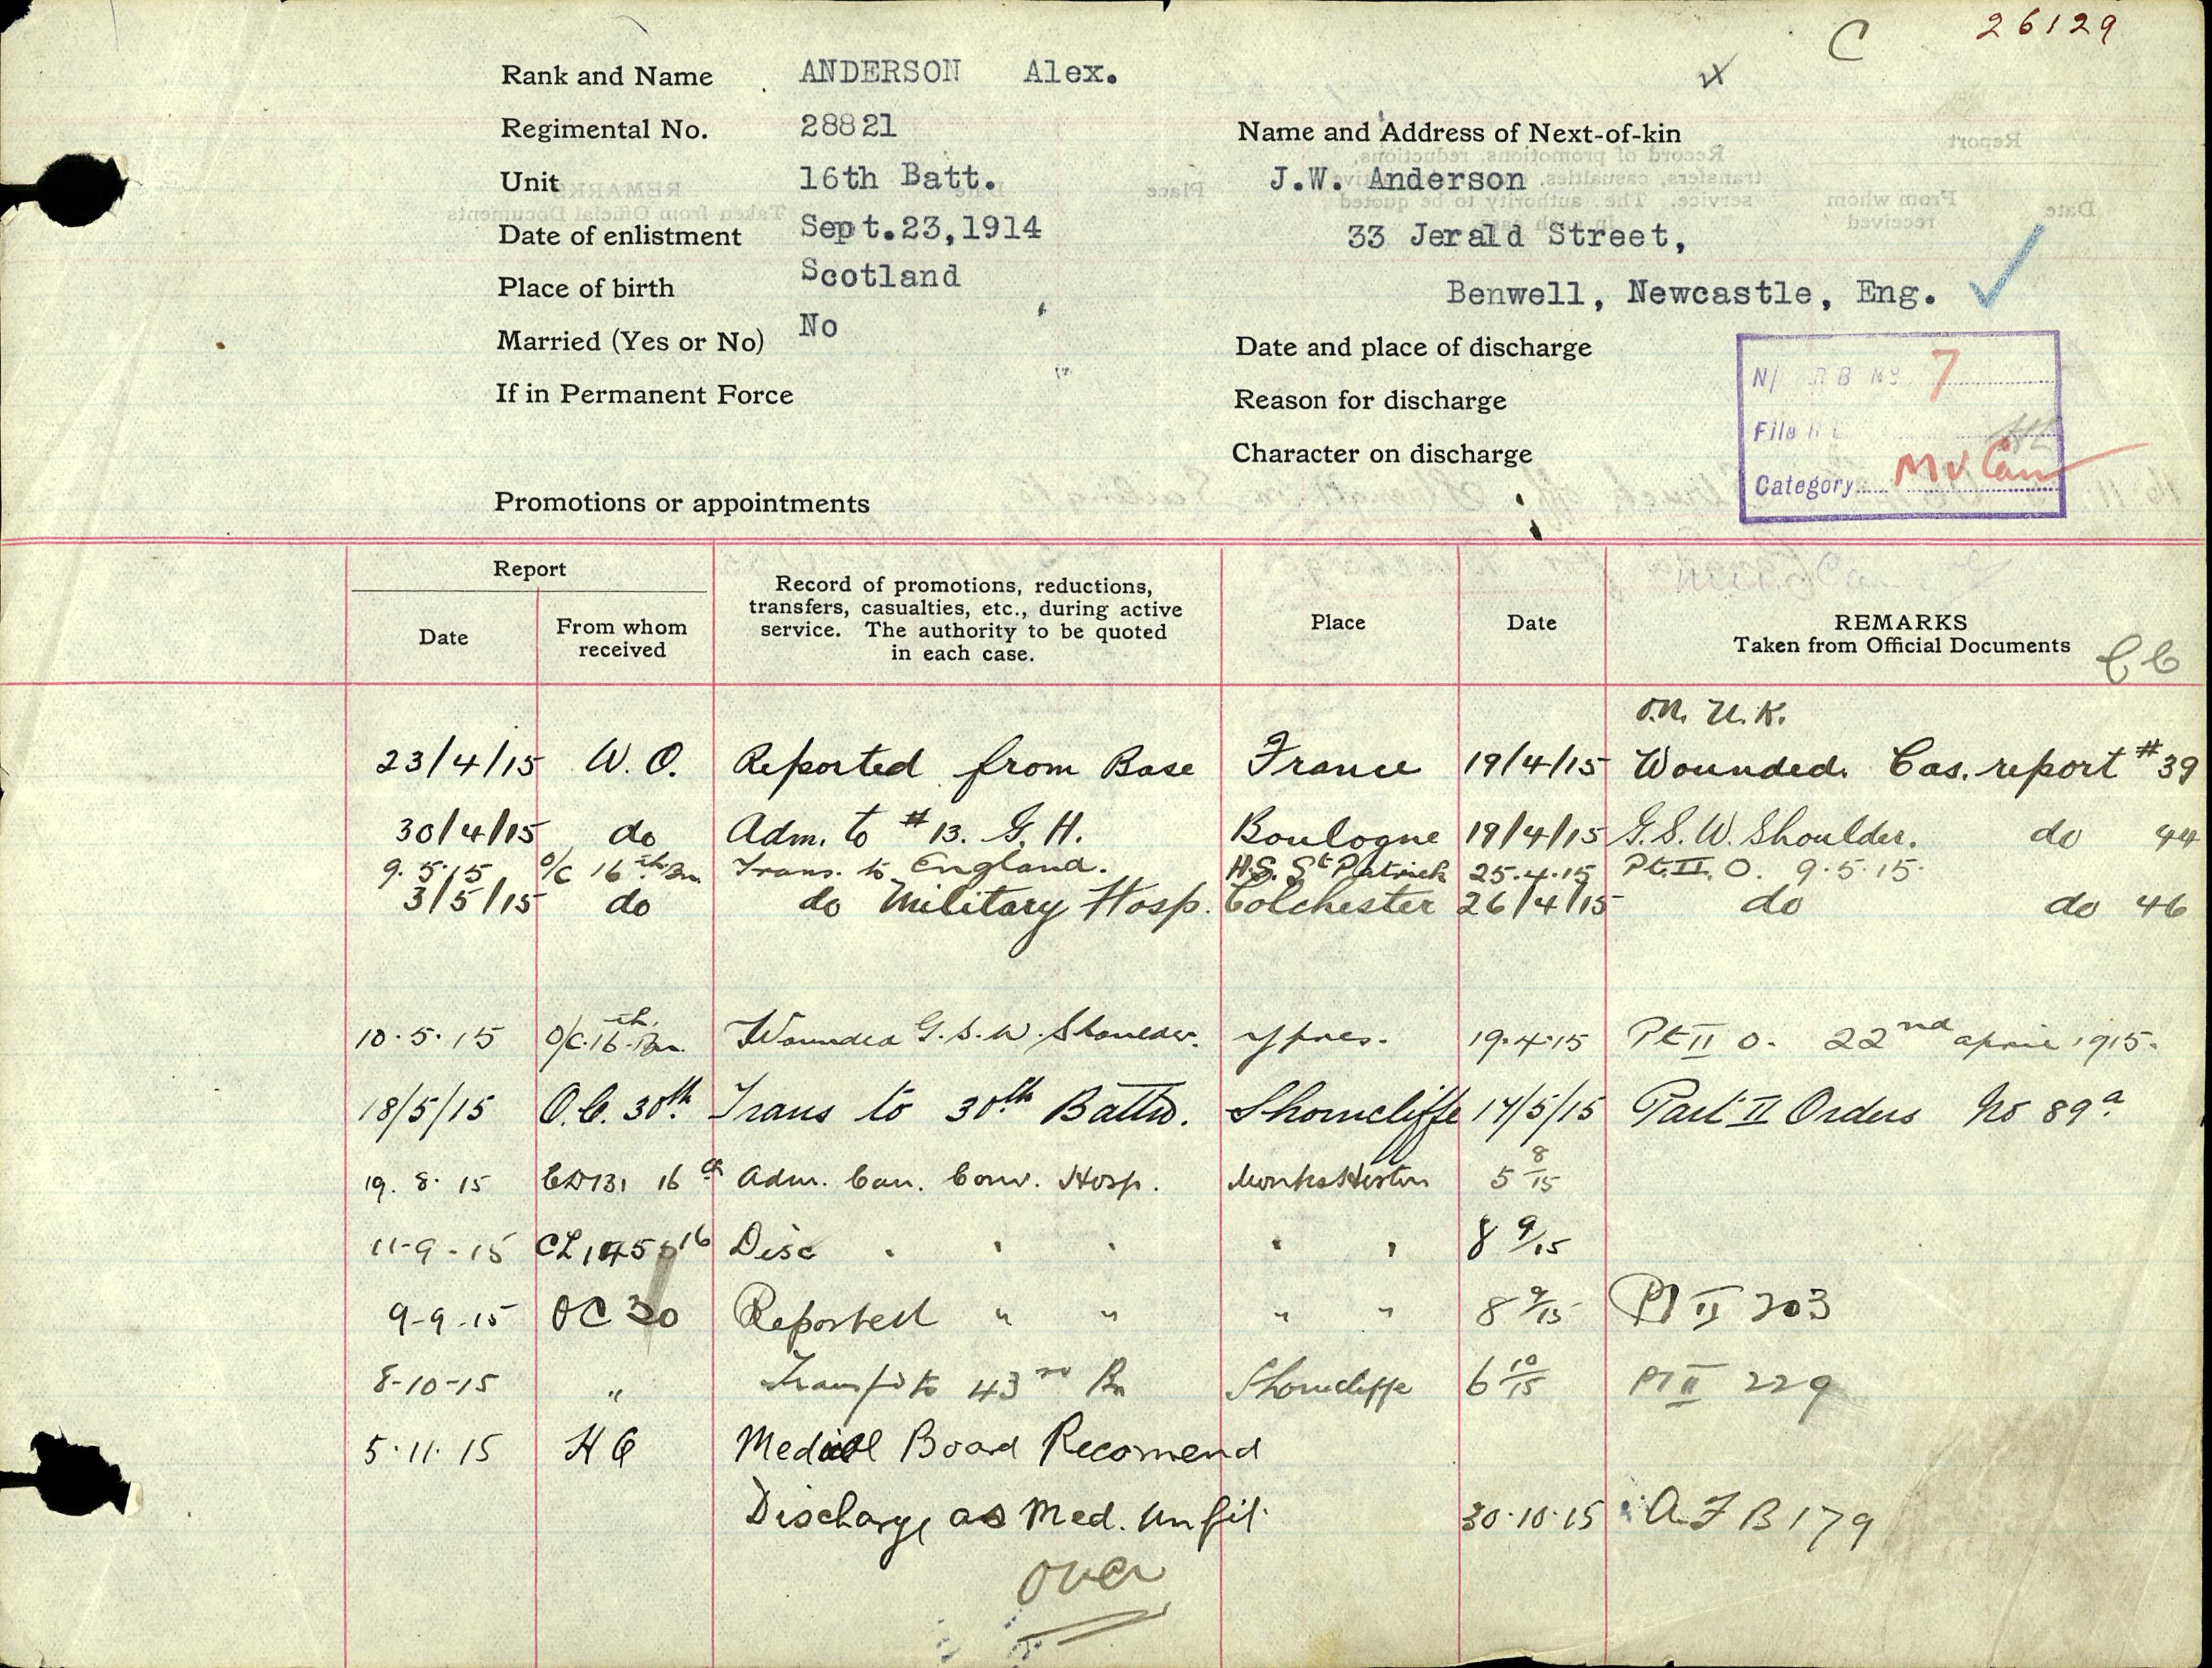 C 26129
Rank and Name ANDERSON Alex.
Regimental No. 28821
Name and Address of Next-of-kin
Unit 16th Batt.
J.W. Anderson
Date of enlistment Sept.23,1914
33 Jerald Street,
Place of birth Scotland
Benwell, Newcastle, Eng.
Married (Yes or No) No
Date and place of discharge
If in Permanent Force
Reason for discharge
Character on discharge
Promotions or appointments
N/ R B No 7
File
Category
Report
Date
From whom received
Record of promotions, reductions,
transfers, casualties, etc., during active
service. The authority to be quoted
in each case.
Place
Date
REMARKS
Taken from Official Documents
U.K.
23/4/15 W.O. Reported from Base France 19/4/15 Wounded. Cas. report #39
30/4/15 do Adm. to #13. G.H. Boulogne 19/4/15 G.S.W. Shoulder. do 44
9.5.15 O/C 16th Bn. Trans. to England. H.S. St Patrick 25.4.15 Pt. II. O. 9.5.15.
3/5/15 do do Military Hosp. Colchester 26/4/15 do do 46
10.5.15 O/C.16th.Bn. Wounded G.S.W. Shoulder. Ypres. 19.4.15 Pt II O. 22nd April 1915.
18/5/15 O.C. 30th. Trans to 30th Battn. Shorncliffe 17/5/15 Part II Orders No 89a
19.8.15 16 Adm. Can. Conv. Hosp. Monks Horton 5 8/15
11-9-15 CL 16 Disc " " " " " 8 9/15
9-9-15 OC 30 Reported " " " " 8 9/15 Pt II 203
8-10-15 " Transf to 43rd Bn Shorncliffe 6 10/15 Pt II 229
5.11.15 H Q Medical Board Recomend
Discharge as Med. Unfit. 30.10.15 A F B 179
over